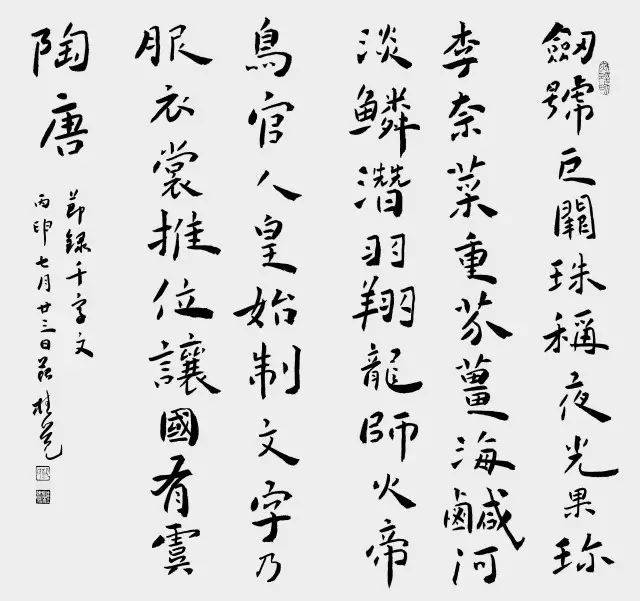 劔號巨闕珠稱夜光果珎
李奈菜重芥薑海鹹河
淡鱗潛羽翔龍師火帝
鳥官人皇始制文字乃
服衣裳推位讓國有虞
陶唐
節錄千字文
丙申七月廿三日